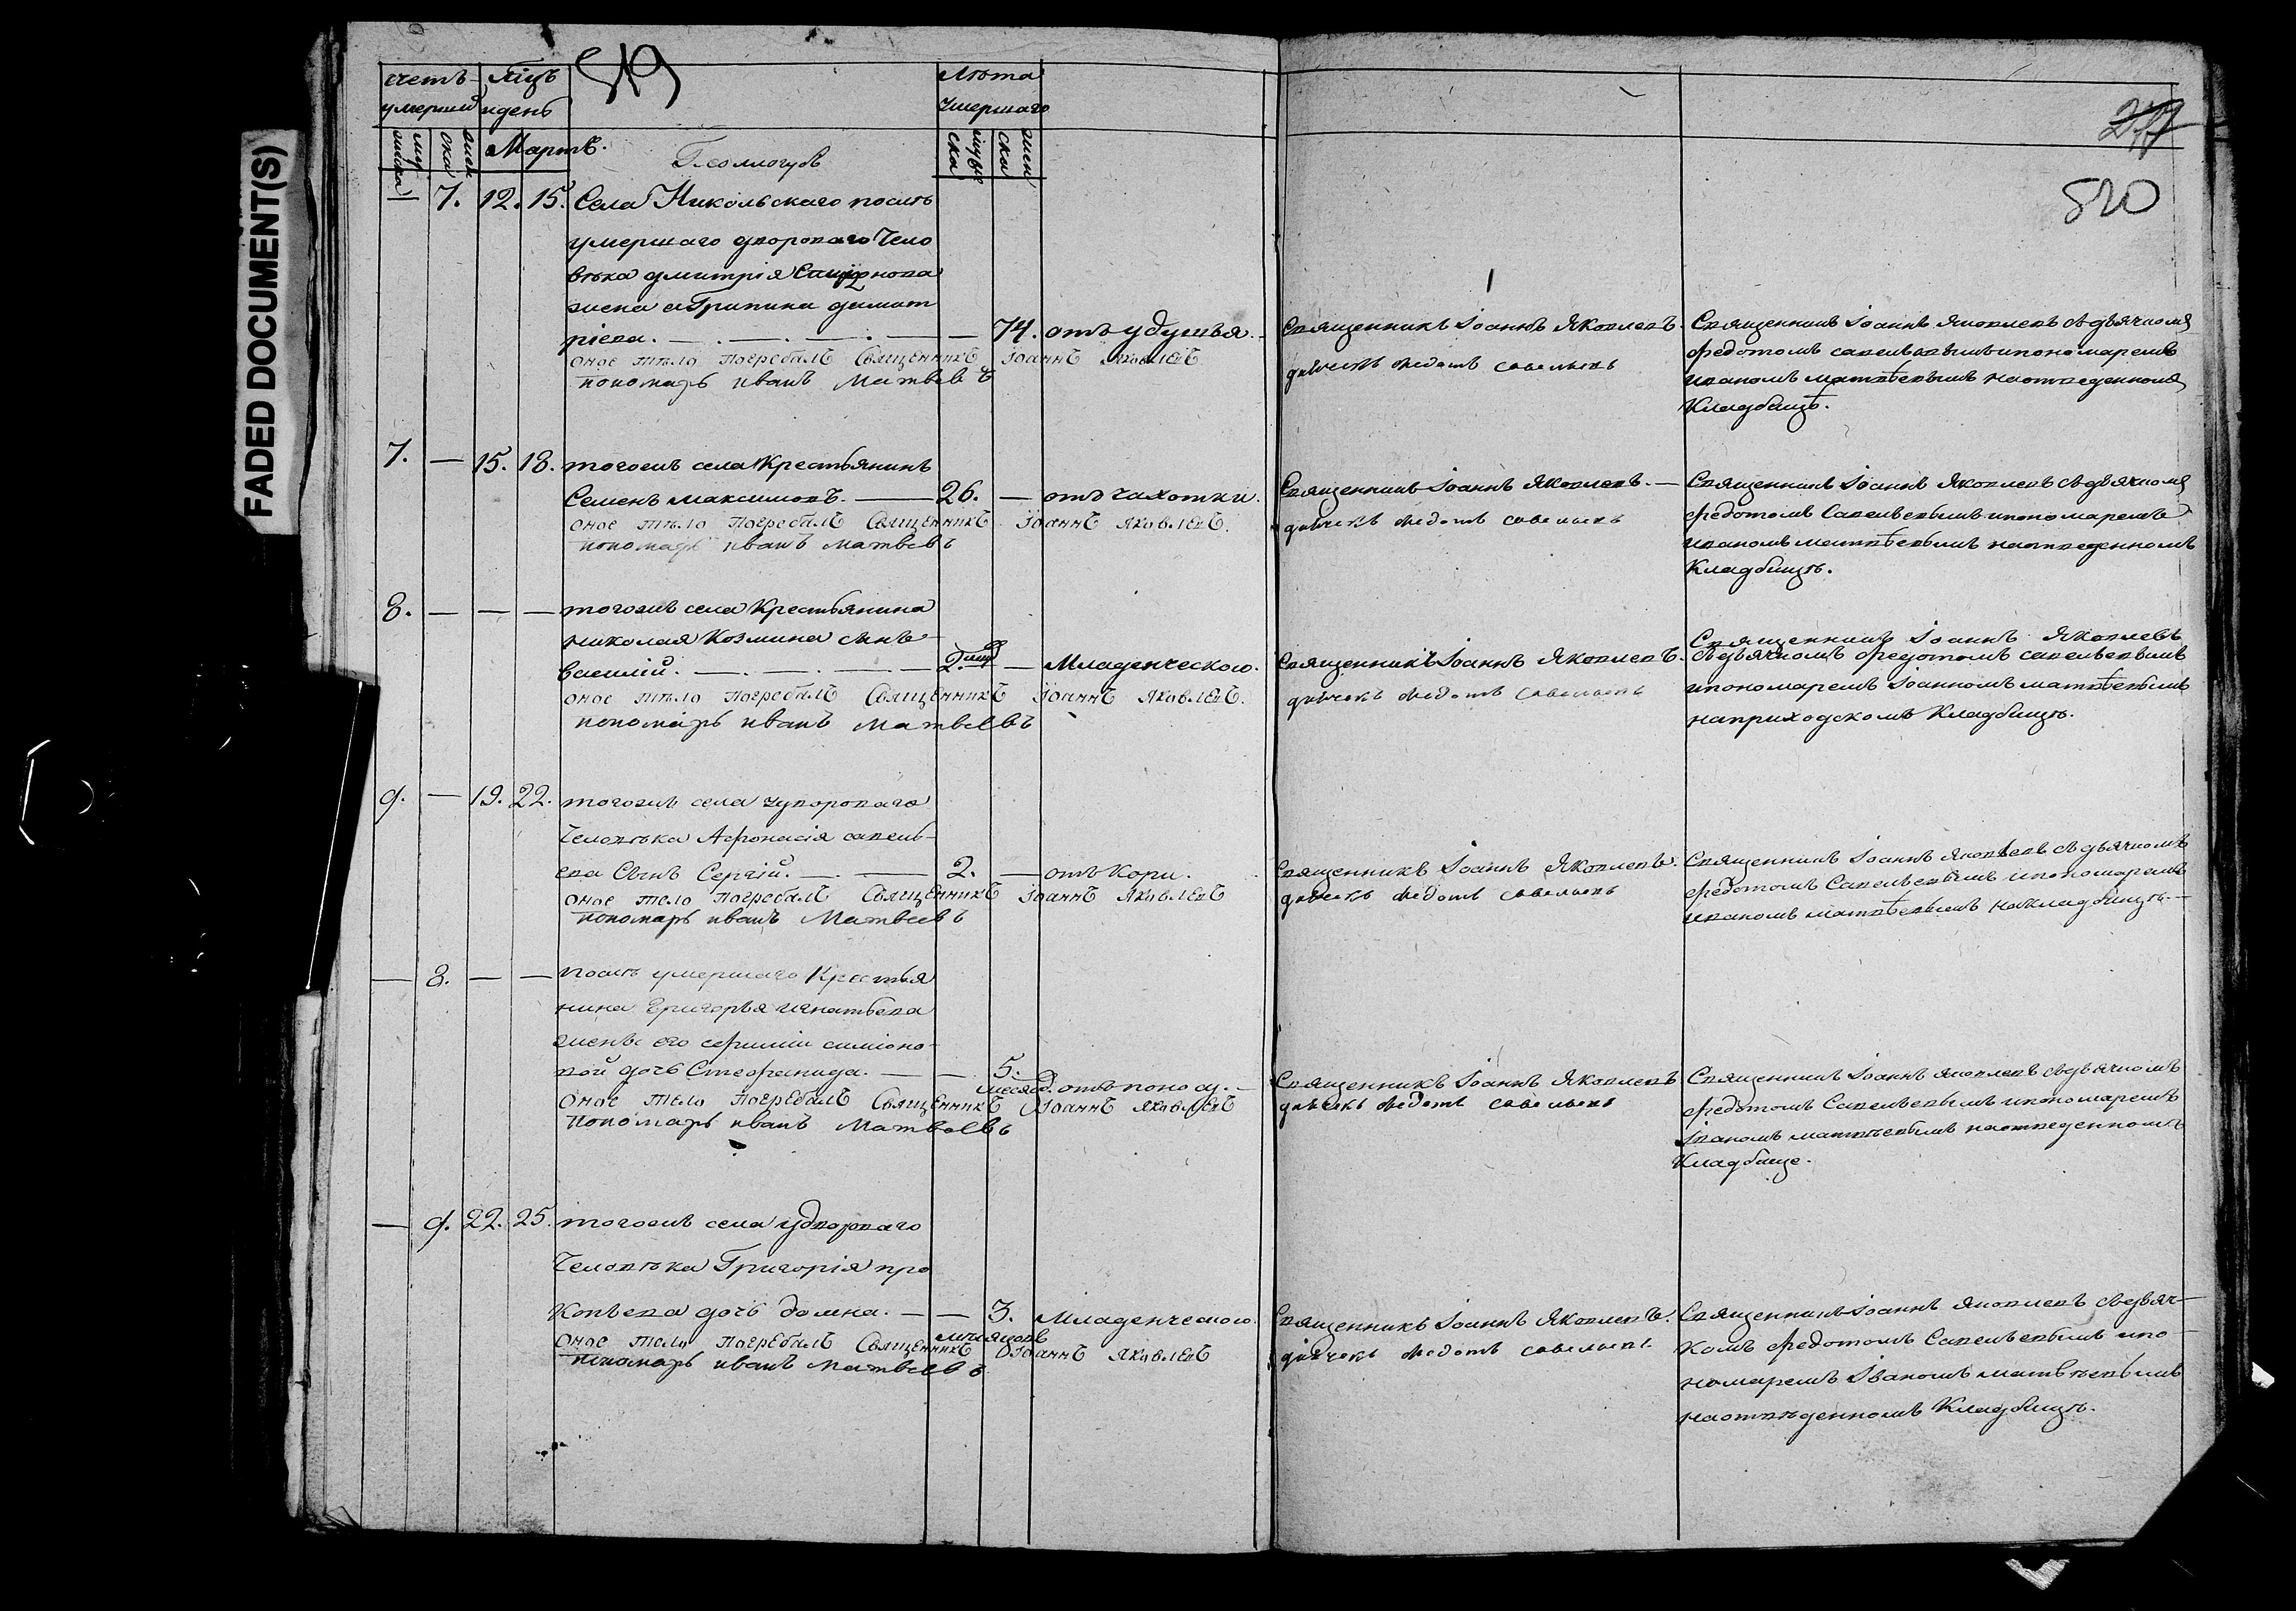 FADED DOCUMENT(S)
519
счетъ
умершихъ
Мцъ
и день
Лѣта
умершаго
277
520
Мартъ.
— 7. 12. 15. Села Никольскаго послѣ
умершаго двороваго чело
вѣка Дмитрія
жена Агрипина Димит
ріева. — — — 74. отъ удушья.
оное тѣло погребалъ Священникъ Іоаннъ Яковлевъ
пономарь иванъ Матвѣевъ
Священникъ Іоаннъ Яковлевъ.
дьячекъ Федотъ Савельевъ
Священникъ Іоаннъ Яковлевъ съ дьячкомъ
федотомъ савельевымъ и пономаремъ
иваномъ матвѣевымъ на отведенномъ
Кладбищѣ.
7. — 15. 18. тогожъ села Крестьянинъ
Семенъ Максимовъ. — 26. — отъ чахотки.
оное тѣло погребалъ Священникъ Іоаннъ Яковлевъ.
пономарь иванъ матвѣевъ
Священникъ Іоаннъ Яковлевъ. —
дьячекъ Федотъ савельевъ
Священникъ Іоаннъ Яковлевъ съ дьячкомъ
федотомъ Савельевымъ и пономаремъ
иваномъ матвѣевымъ на отведенномъ
Кладбищѣ.
8. — — — тогожъ села Крестьянина
николая Козмина сынъ
василій. — — — 2. — Младенческою.
оное тѣло погребалъ Священникъ Іоаннъ Яковлевъ.
пономарь иванъ Матвеевъ
Священникъ Іоаннъ Яковлевъ.
дьячекъ Федотъ Савельевъ
Священникъ Іоаннъ Яковлевъ
съ дьячкомъ федотомъ савельевымъ
и пономаремъ Іоанномъ матвѣевымъ
на приходскомъ Кладбищѣ.
9. — 19. 22. тогожъ села двороваго
Человѣка Афонасія савель-
ева Сынъ Сергій. — — 2. — отъ Кори.
оное тело погребалъ Священникъ Іоаннъ Яковлевъ
пономарь иванъ Матвеевъ
Священникъ Іоаннъ Яковлевъ.
дьячекъ Федотъ савельевъ
Священникъ Іоаннъ Яковлевъ съ дьячкомъ
федотомъ Савельевымъ и пономаремъ
иваномъ матвѣевымъ на кладбищѣ. —
— 8. — — послѣ умершаго Крестья
нина Григорья игнатьева
жены его семионо-
вой дочь Стефанида. — — 5.
месяц. отъ поносу. —
Оное тело погребалъ Священникъ Іоаннъ Яковлевъ
Пономарь иванъ Матвеевъ
Священникъ Іоаннъ Яковлевъ
дьячекъ Федотъ савельевъ
Священникъ Іоаннъ Яковлевъ съ дьячкомъ
федотомъ Савельевымъ и пономаремъ
Іваномъ матвѣевымъ на отведенномъ
Кладбище.
— 9. 22. 25. тогожъ села двороваго
Человѣка Григорія про
Копьева дочь домна. — — 3. Младенческою.
мѣсяцовъ
Оное тело погребалъ Священникъ Іоаннъ Яковлевъ
пономарь иванъ Матвеевъ
Священникъ Іоаннъ Яковлевъ.
дьячекъ Федотъ савельевъ
Священникъ Іоаннъ Яковлевъ съ дьяч-
комъ федотомъ Савельевымъ и по-
номаремъ Іваномъ матвѣевымъ
на отведенномъ Кладбищѣ.